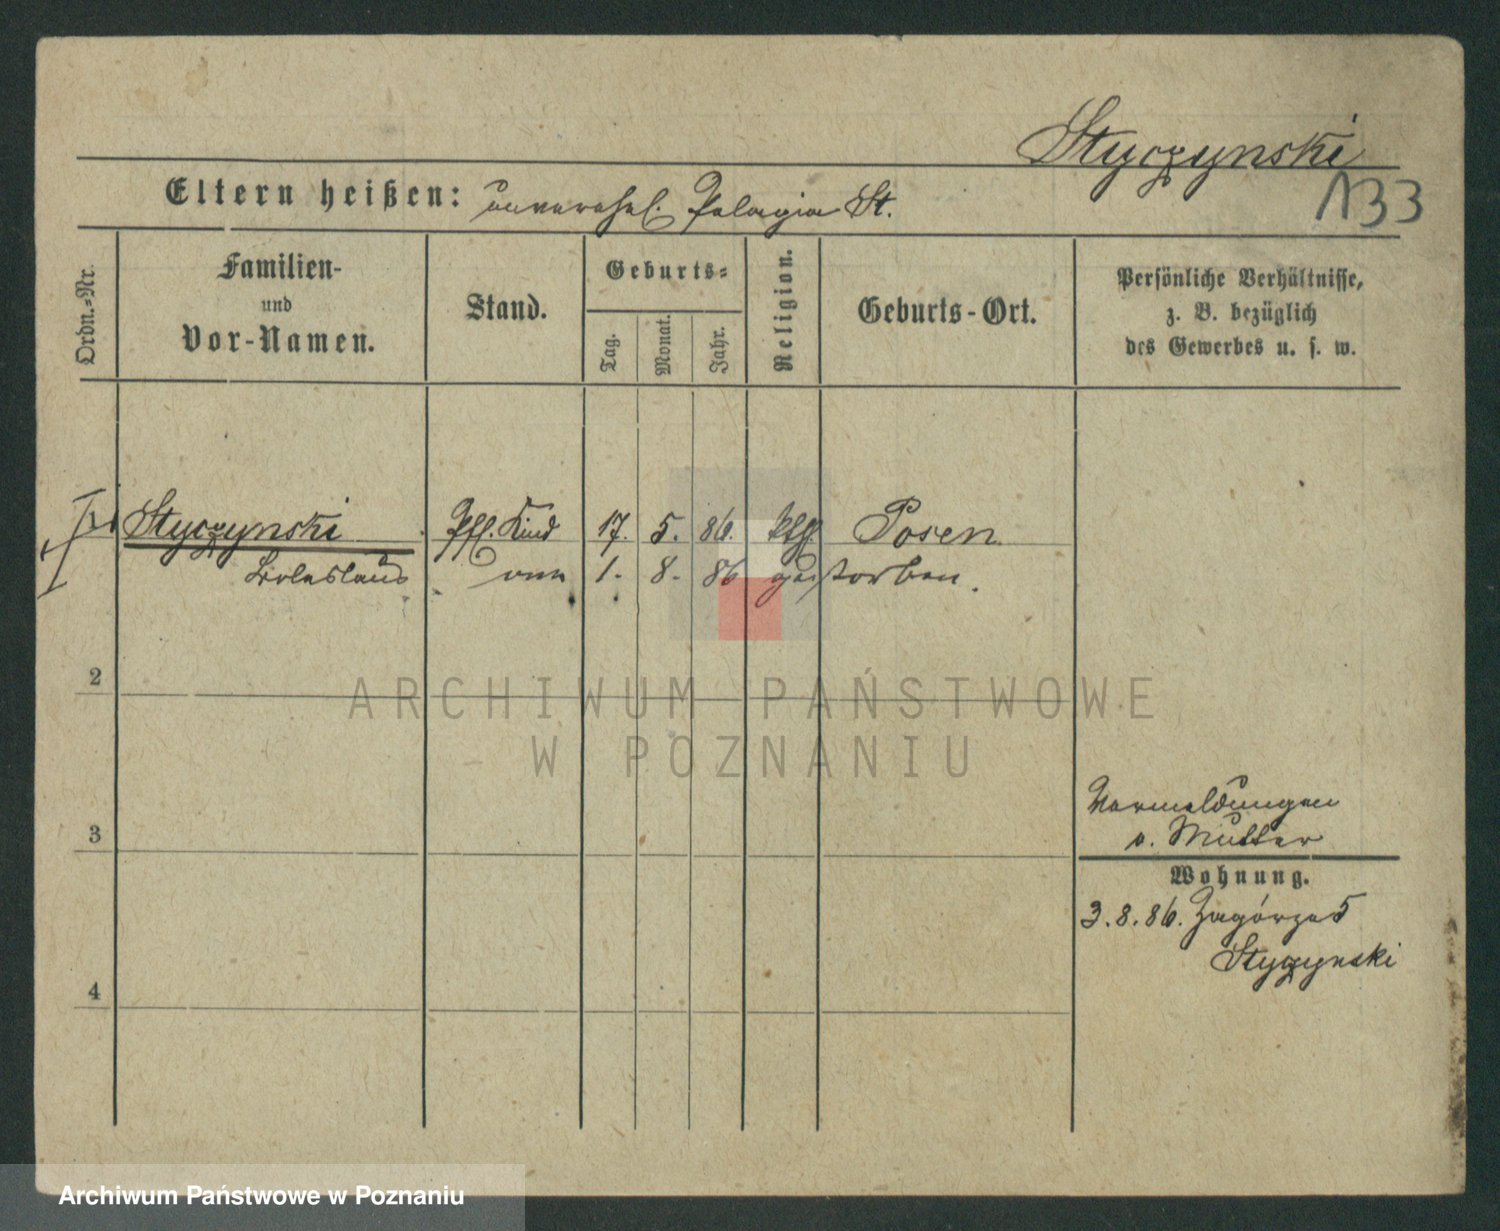 Styczynski
133
Eltern heißen: unverehel. Pelagia St.
Ordn.=Nr.
Familien-
und
Vor-Namen.
Stand.
Geburts=
Tag.
Monat.
Jahr.
Religion.
Geburts-Ort.
Persönliche Verhältnisse,
z. B. bezüglich
des Gewerbes u. s. w.
1 Styczynski Pfl. Kind 17. 5. 86. kth. Posen
Boleslaus am 1. 8. 86 gestorben.
2
ARCHIWUM PAŃSTWOWE
W POZNANIU
3
Vormeldungen
s. Mutter
Wohnung.
3. 8. 86. Zagórze 5
Styczynski
4
Archiwum Państwowe w Poznaniu